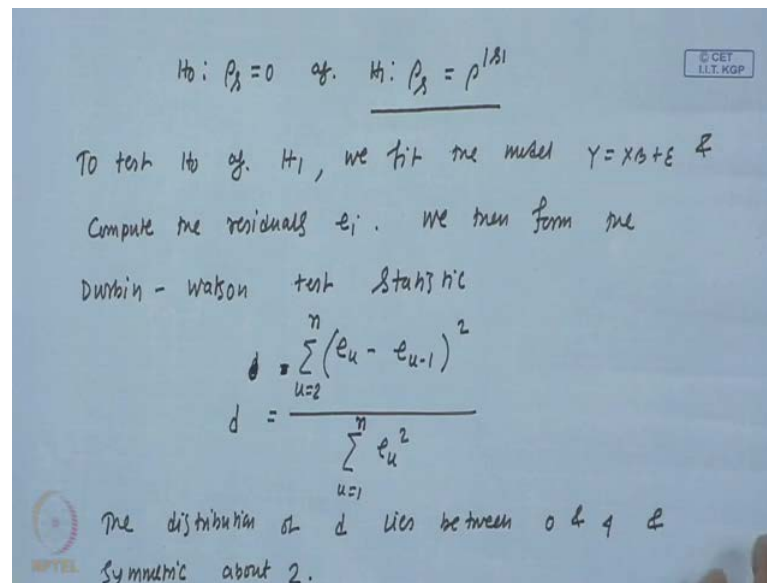 H0: ρs = 0 ag. H1: ρs = ρ^|s|
© CET
I.I.T. KGP
To test H0 ag. H1, we fit the model Y = Xβ + ε &
Compute the residuals ei. We then form the
Durbin - Watson test Statistic
d = ∑_{u=2}^{n} (e_u - e_{u-1})^2 / ∑_{u=1}^{n} e_u^2
The distribution of d lies between 0 & 4 &
Symmetric about 2.
NPTEL